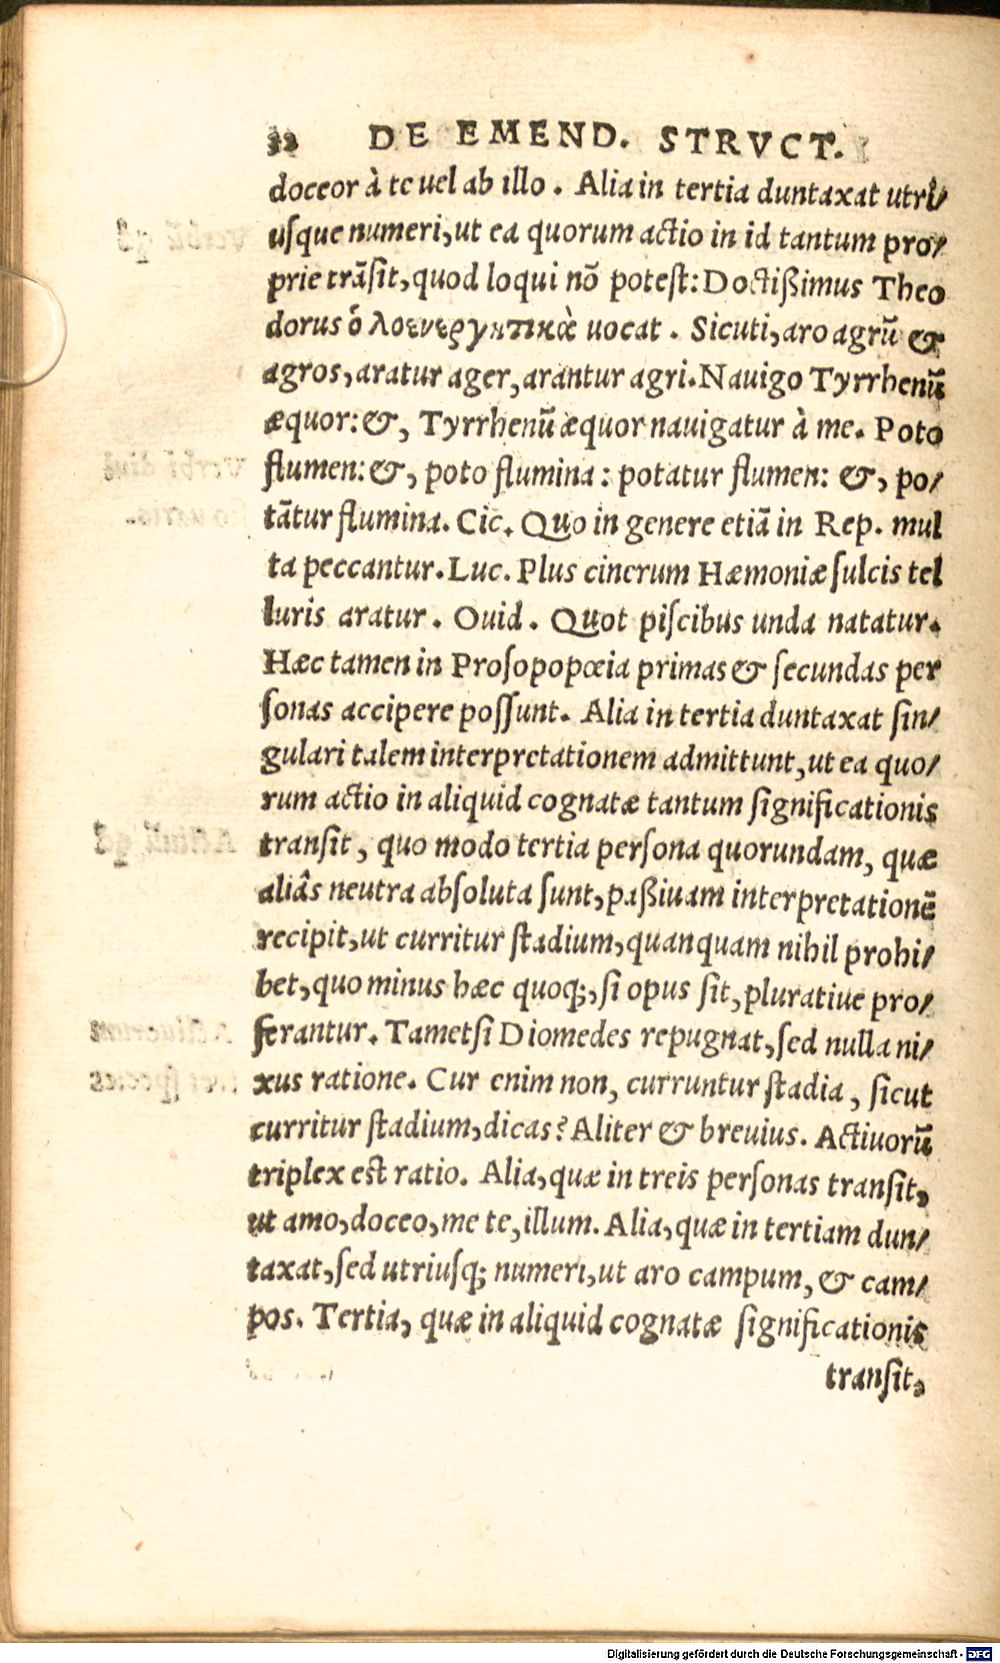 32 DE EMEND. STRVCT.
doceor à te uel ab illo. Alia in tertia duntaxat utri/
usque numeri, ut ea quorum actio in id tantum pro/
prie trāsit, quod loqui nō potest: Doctißimus Theo
dorus ὁλοενεργητικὰ uocat. Sicuti, aro agrū &
agros, aratur ager, arantur agri. Nauigo Tyrrhenū
æquor: &, Tyrrhenū æquor nauigatur à me. Poto
flumen: &, poto flumina: potatur flumen: &, po/
tātur flumina. Cic. Quo in genere etiā in Rep. mul
ta peccantur. Luc. Plus cinerum Hæmoniæ sulcis tel
luris aratur. Ouid. Quot piscibus unda natatur.
Hæc tamen in Prosopopœia primas & secundas per
sonas accipere possunt. Alia in tertia duntaxat sin/
gulari talem interpretationem admittunt, ut ea quo/
rum actio in aliquid cognatæ tantum significationis
transit, quo modo tertia persona quorundam, quæ
aliâs neutra absoluta sunt, paßiuam interpretationē
recipit, ut curritur stadium, quanquam nihil prohi/
bet, quo minus hæc quoq;, si opus sit, pluratiue pro/
ferantur. Tametsi Diomedes repugnat, sed nulla ni/
xus ratione. Cur enim non, curruntur stadia, sicut
curritur stadium, dicas? Aliter & breuius. Actiuorū
triplex est ratio. Alia, quæ in treis personas transit,
ut amo, doceo, me te, illum. Alia, quæ in tertiam dun/
taxat, sed utriusq; numeri, ut aro campum, & cam/
pos. Tertia, quæ in aliquid cognatæ significationis
transit,
Digitalisierung gefördert durch die Deutsche Forschungsgemeinschaft - DFG